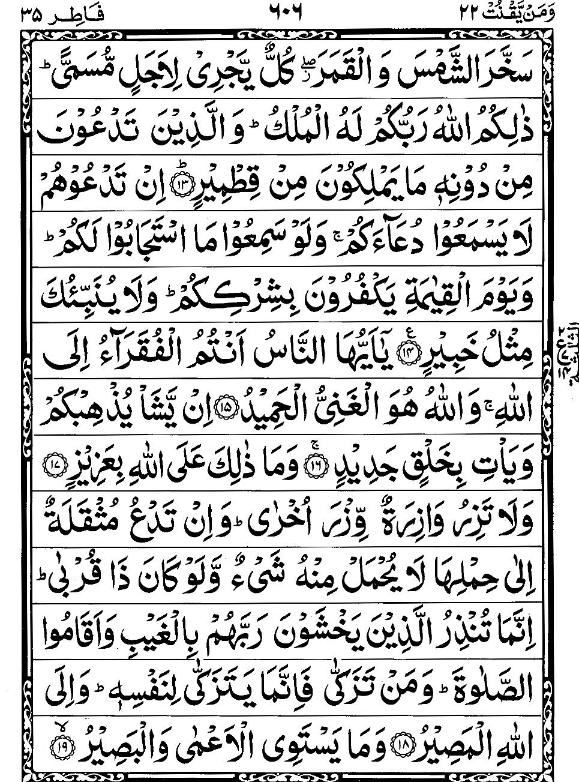 وَمَنْ يَّقْنُتْ ٢٢ ٦٠٦ فَاطِر ٣٥
سَخَّرَ الشَّمْسَ وَالْقَمَرَ ۖ كُلٌّ يَّجْرِىْ لِاَجَلٍ مُّسَمًّى ؕ
ذٰلِكُمُ اللّٰهُ رَبُّكُمْ لَهُ الْمُلْكُ ؕ وَالَّذِيْنَ تَدْعُوْنَ
مِنْ دُوْنِهٖ مَا يَمْلِكُوْنَ مِنْ قِطْمِيْرٍ ؕ ﴿۱۳﴾ اِنْ تَدْعُوْهُمْ
لَا يَسْمَعُوْا دُعَآءَكُمْ ۚ وَلَوْ سَمِعُوْا مَا اسْتَجَابُوْا لَكُمْ ؕ
وَيَوْمَ الْقِيٰمَةِ يَكْفُرُوْنَ بِشِرْكِكُمْ ؕ وَلَا يُنَبِّئُكَ
مِثْلُ خَبِيْرٍ ﴿۱۴﴾ ع يٰۤاَيُّهَا النَّاسُ اَنْتُمُ الْفُقَرَآءُ اِلَى
اللّٰهِ ۚ وَاللّٰهُ هُوَ الْغَنِىُّ الْحَمِيْدُ ﴿۱۵﴾ اِنْ يَّشَاْ يُذْهِبْكُمْ
وَيَاْتِ بِخَلْقٍ جَدِيْدٍ ۚ ﴿۱۶﴾ وَمَا ذٰلِكَ عَلَى اللّٰهِ بِعَزِيْزٍ ﴿۱۷﴾
وَلَا تَزِرُ وَازِرَةٌ وِّزْرَ اُخْرٰى ؕ وَاِنْ تَدْعُ مُثْقَلَةٌ
اِلٰى حِمْلِهَا لَا يُحْمَلْ مِنْهُ شَىْءٌ وَّلَوْ كَانَ ذَا قُرْبٰى ؕ
اِنَّمَا تُنْذِرُ الَّذِيْنَ يَخْشَوْنَ رَبَّهُمْ بِالْغَيْبِ وَاَقَامُوا
الصَّلٰوةَ ؕ وَمَنْ تَزَكّٰى فَاِنَّمَا يَتَزَكّٰى لِنَفْسِهٖ ؕ وَاِلَى
اللّٰهِ الْمَصِيْرُ ﴿۱۸﴾ وَمَا يَسْتَوِى الْاَعْمٰى وَالْبَصِيْرُ ۙ ﴿۱۹﴾